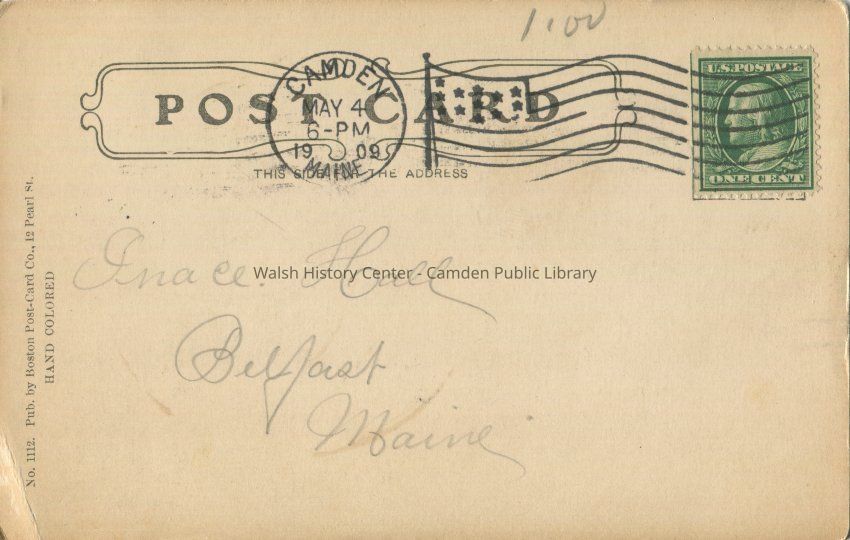 1.00
POST CARD
CAMDEN
MAY 4
6-PM
19 09
MAINE
U.S. POSTAGE
ONE CENT
THIS SIDE FOR THE ADDRESS
Grace Hall
Walsh History Center - Camden Public Library
Belfast
Maine
No. 1112. Pub. by Boston Post-Card Co., 12 Pearl St.
HAND COLORED